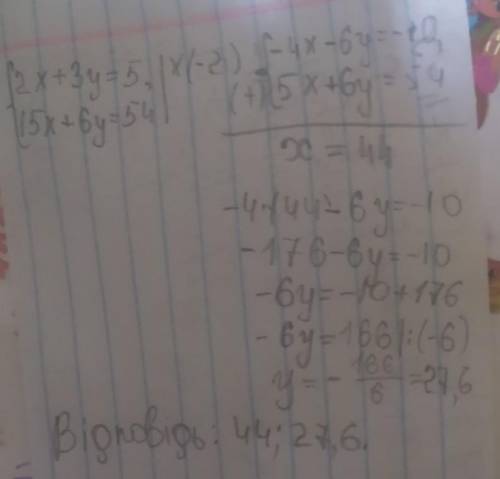 {2x+3y=5, | x(-2) {-4x-6y=-10,
{5x+6y=54 | (+) {5x+6y=54
x = 44
-4·44-6y=-10
-176-6y=-10
-6y=-10+176
-6y=166 |:(-6)
y=-166/6=27,6
Відповідь: 44; 27,6.